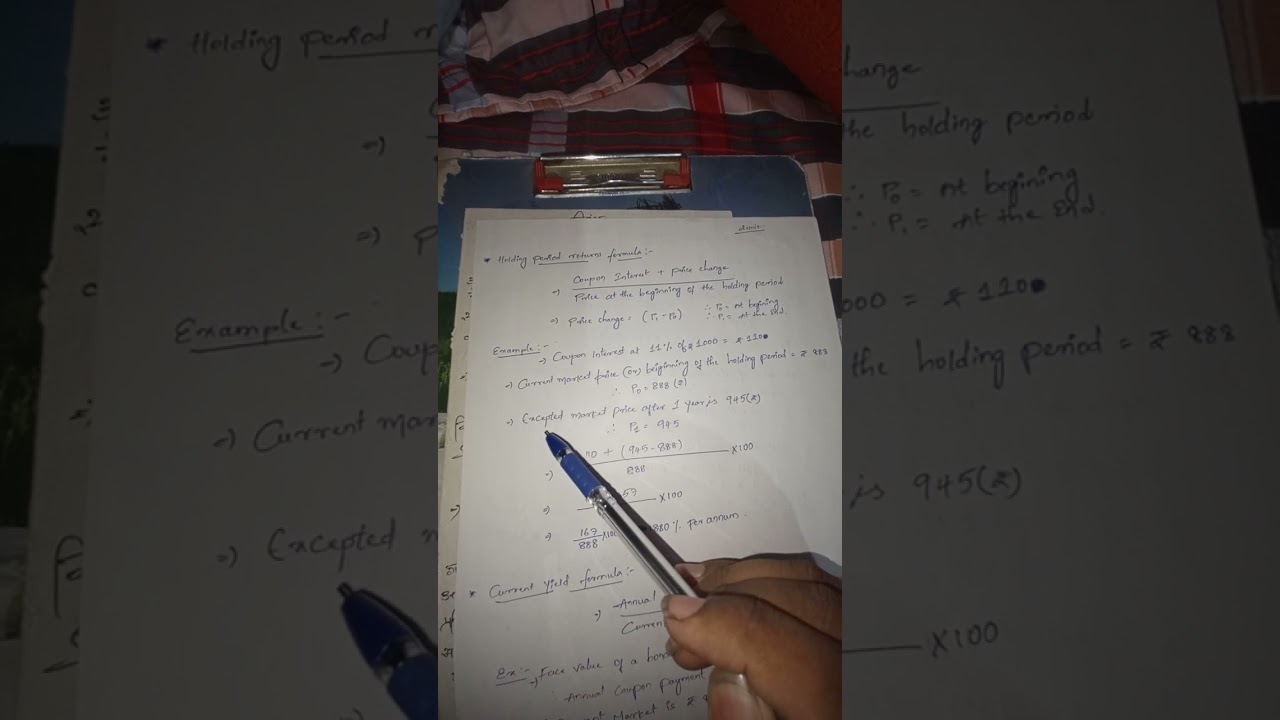 * Holding period returns formula:-
=> Coupon Interest + Price change
Price at the beginning of the holding period
=> Price change = (P₁ - P₀) ∴ P₀ = At begining
∴ P₁ = At the End.
Example:-
=> Coupon Interest at 11% of ₹ 1000 = ₹ 110
=> Current market price (or) beginning of the holding period = ₹ 888
∴ P₀ = 888 (₹)
=> Excepted market price after 1 year is 945(₹)
∴ P₁ = 945
=> + (945 - 888) ×100
888
=> 57 ×100
=> 167 ×100 880% Per annum.
888
* Current yield formula:-
=> Annual
Current
Ex:-
=> Face value of a bond
∴ Annual Coupon payment
Market is ₹